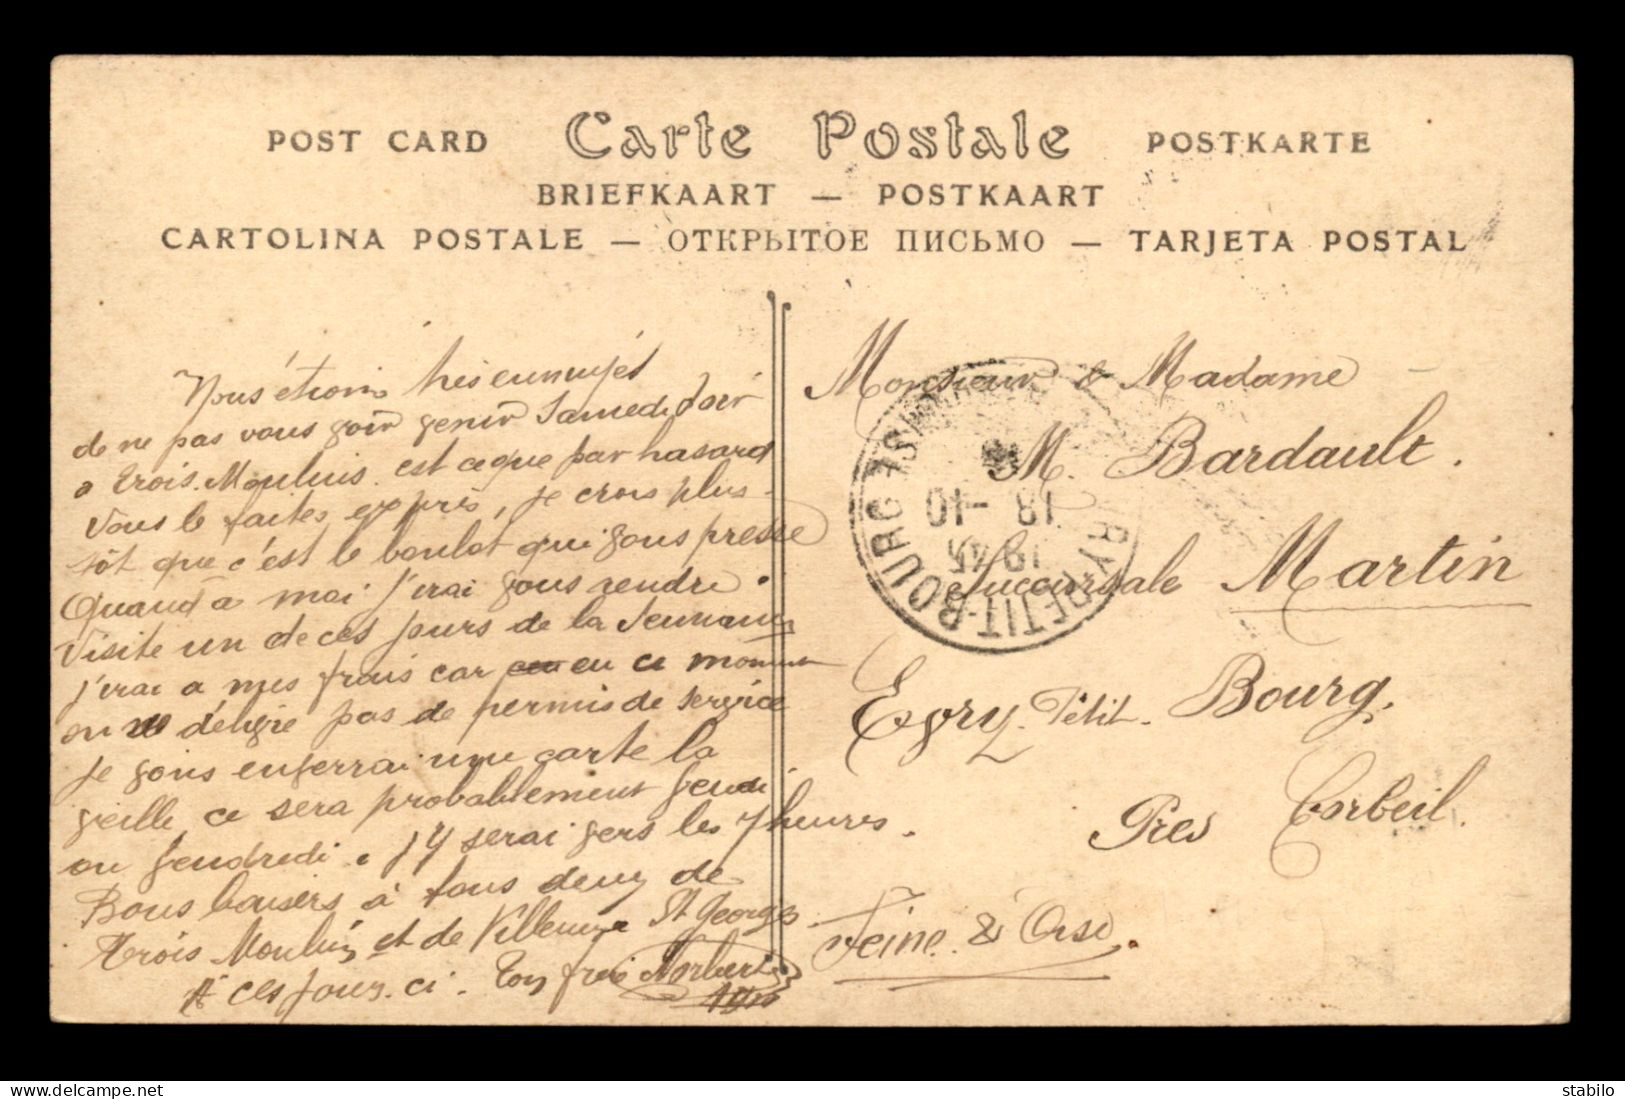 POST CARD Carte Postale POSTKARTE
BRIEFKAART — POSTKAART
CARTOLINA POSTALE — ОТКРЫТОЕ ПИСЬМО — TARJETA POSTAL
Nous étions très ennuyés
de ne pas vous voir venir Samedi soir
a trois. Moulins. est ce que par hasard
vous le faites exprès, je crois plus
tôt que c'est le boulot qui vous presse
Quand a moi j'irai vous rendre
visite un de ces jours de la Semaine
j'irai a mes frais car en ce moment
on ne délivre pas de permis de service
je vous enverrai une carte la
veille, ce sera probablement Jeudi
ou Vendredi. j'y serai vers les 7 heures.
Bons baisers à tous deux de
trois Moulins et de Villeneuve St Georges
A ces jours-ci. Ton frère Norbert
Monsieur & Madame
M. Bardault.
Succursale Martin
Evry. Petit. Bourg.
Près Corbeil.
Seine. & Oise.
EVRY-PETIT-BOURG
18 -10
19 45
stabilo